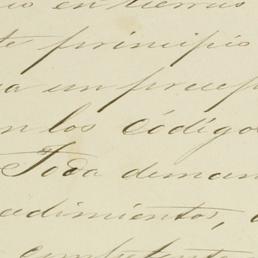 en tierras
te principio
a un precep
n los código
Toda deman
edimientos,
competente